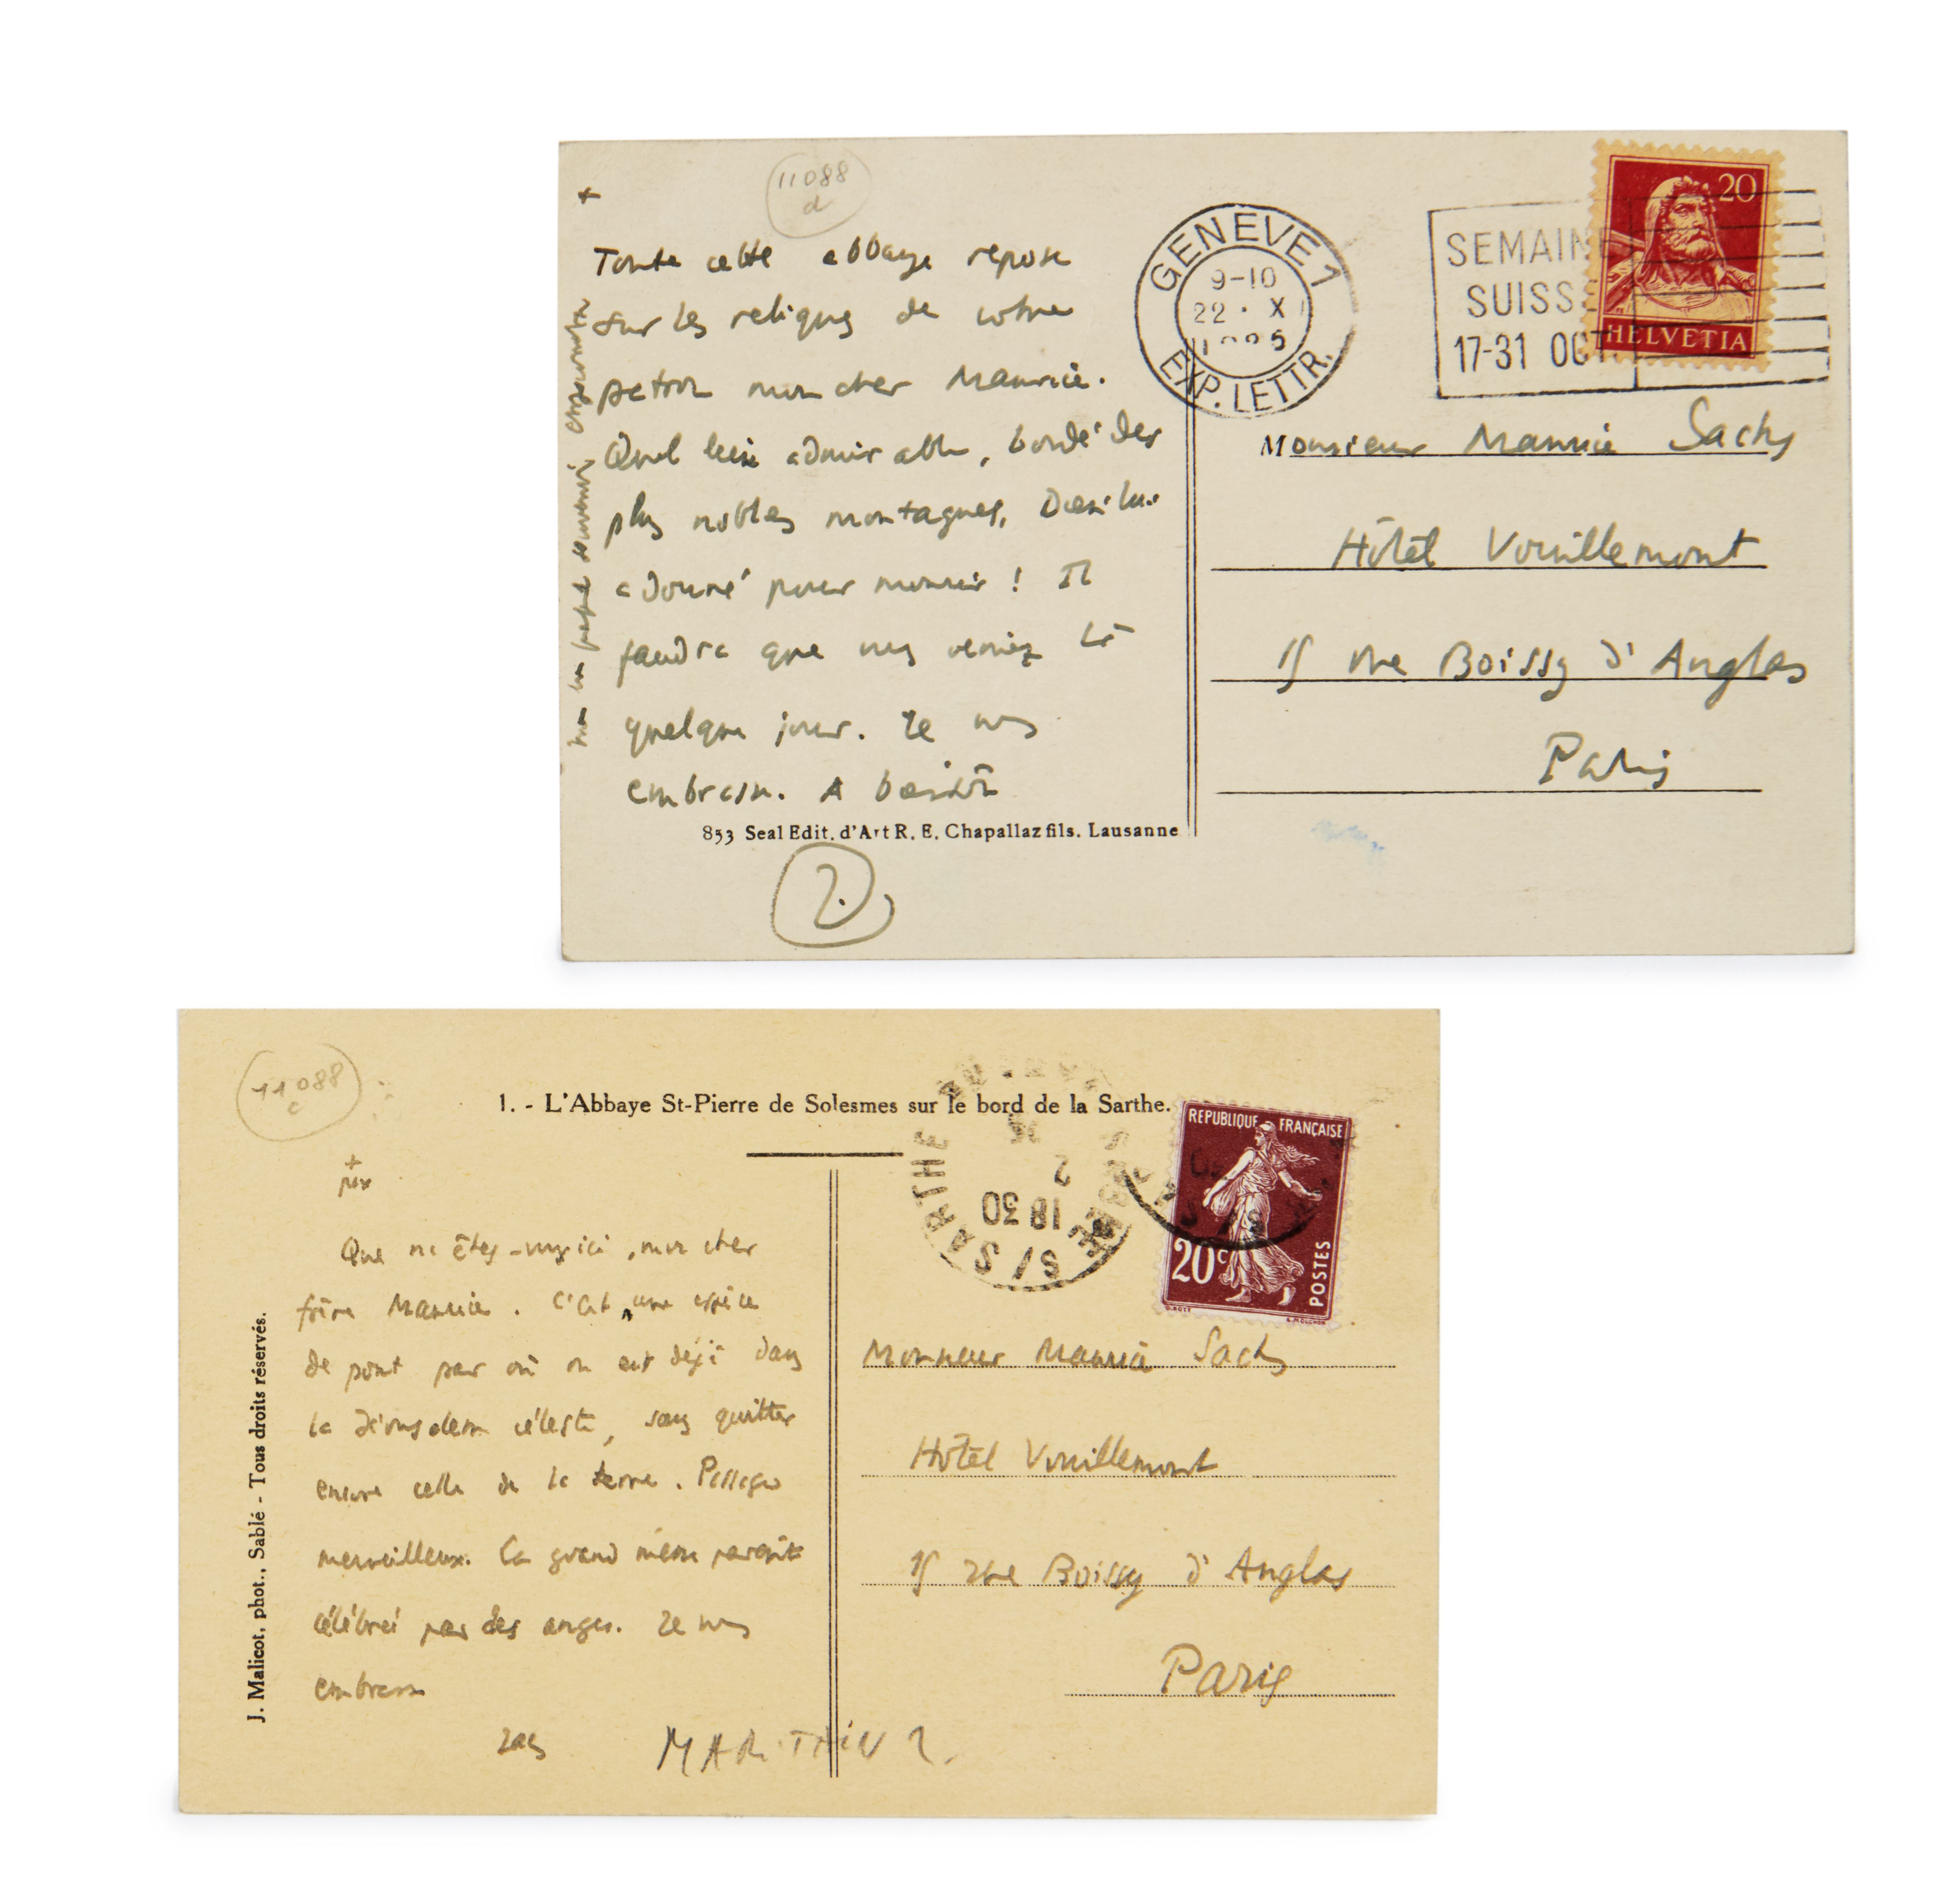 11088
d
+
Toute cette abbaye repose
sur les reliques de votre
patron mon cher Maurice.
Quel lieu admirable, bordé des
plus nobles montagnes. Dieu lui
a donné pour mourir ! Il
faudra que vous veniez là
quelque jour. Je vous
embrasse. A bientôt
souvenir
853 Seal Edit. d'Art R. E. Chapallaz fils. Lausanne
2.
GENEVE 1
9-10
22 · X
EXP. LETTR.
SEMAINE
SUISSE
17-31 OCT.
20
HELVETIA
Monsieur Maurice Sachs
Hôtel Vouillemont
15 rue Boissy d'Anglas
Paris
11088
c
1. - L'Abbaye St-Pierre de Solesmes sur le bord de la Sarthe.
+
pax
Que n'êtes-vous ici, mon cher
frère Maurice. C'est une espèce
de pont par où on est déjà dans
la Jérusalem céleste, sans quitter
encore celle de la terre. Passage
merveilleux. La grand'messe paraît
célébrée par des anges. Je vous
embrasse
Jacques
MARITAIN ?
J. Malicot, phot., Sablé - Tous droits réservés.
S/ SARTHE
18 30
2
REPUBLIQUE FRANÇAISE
20c
POSTES
Monsieur Maurice Sachs
Hôtel Vouillemont
15 rue Boissy d'Anglas
Paris